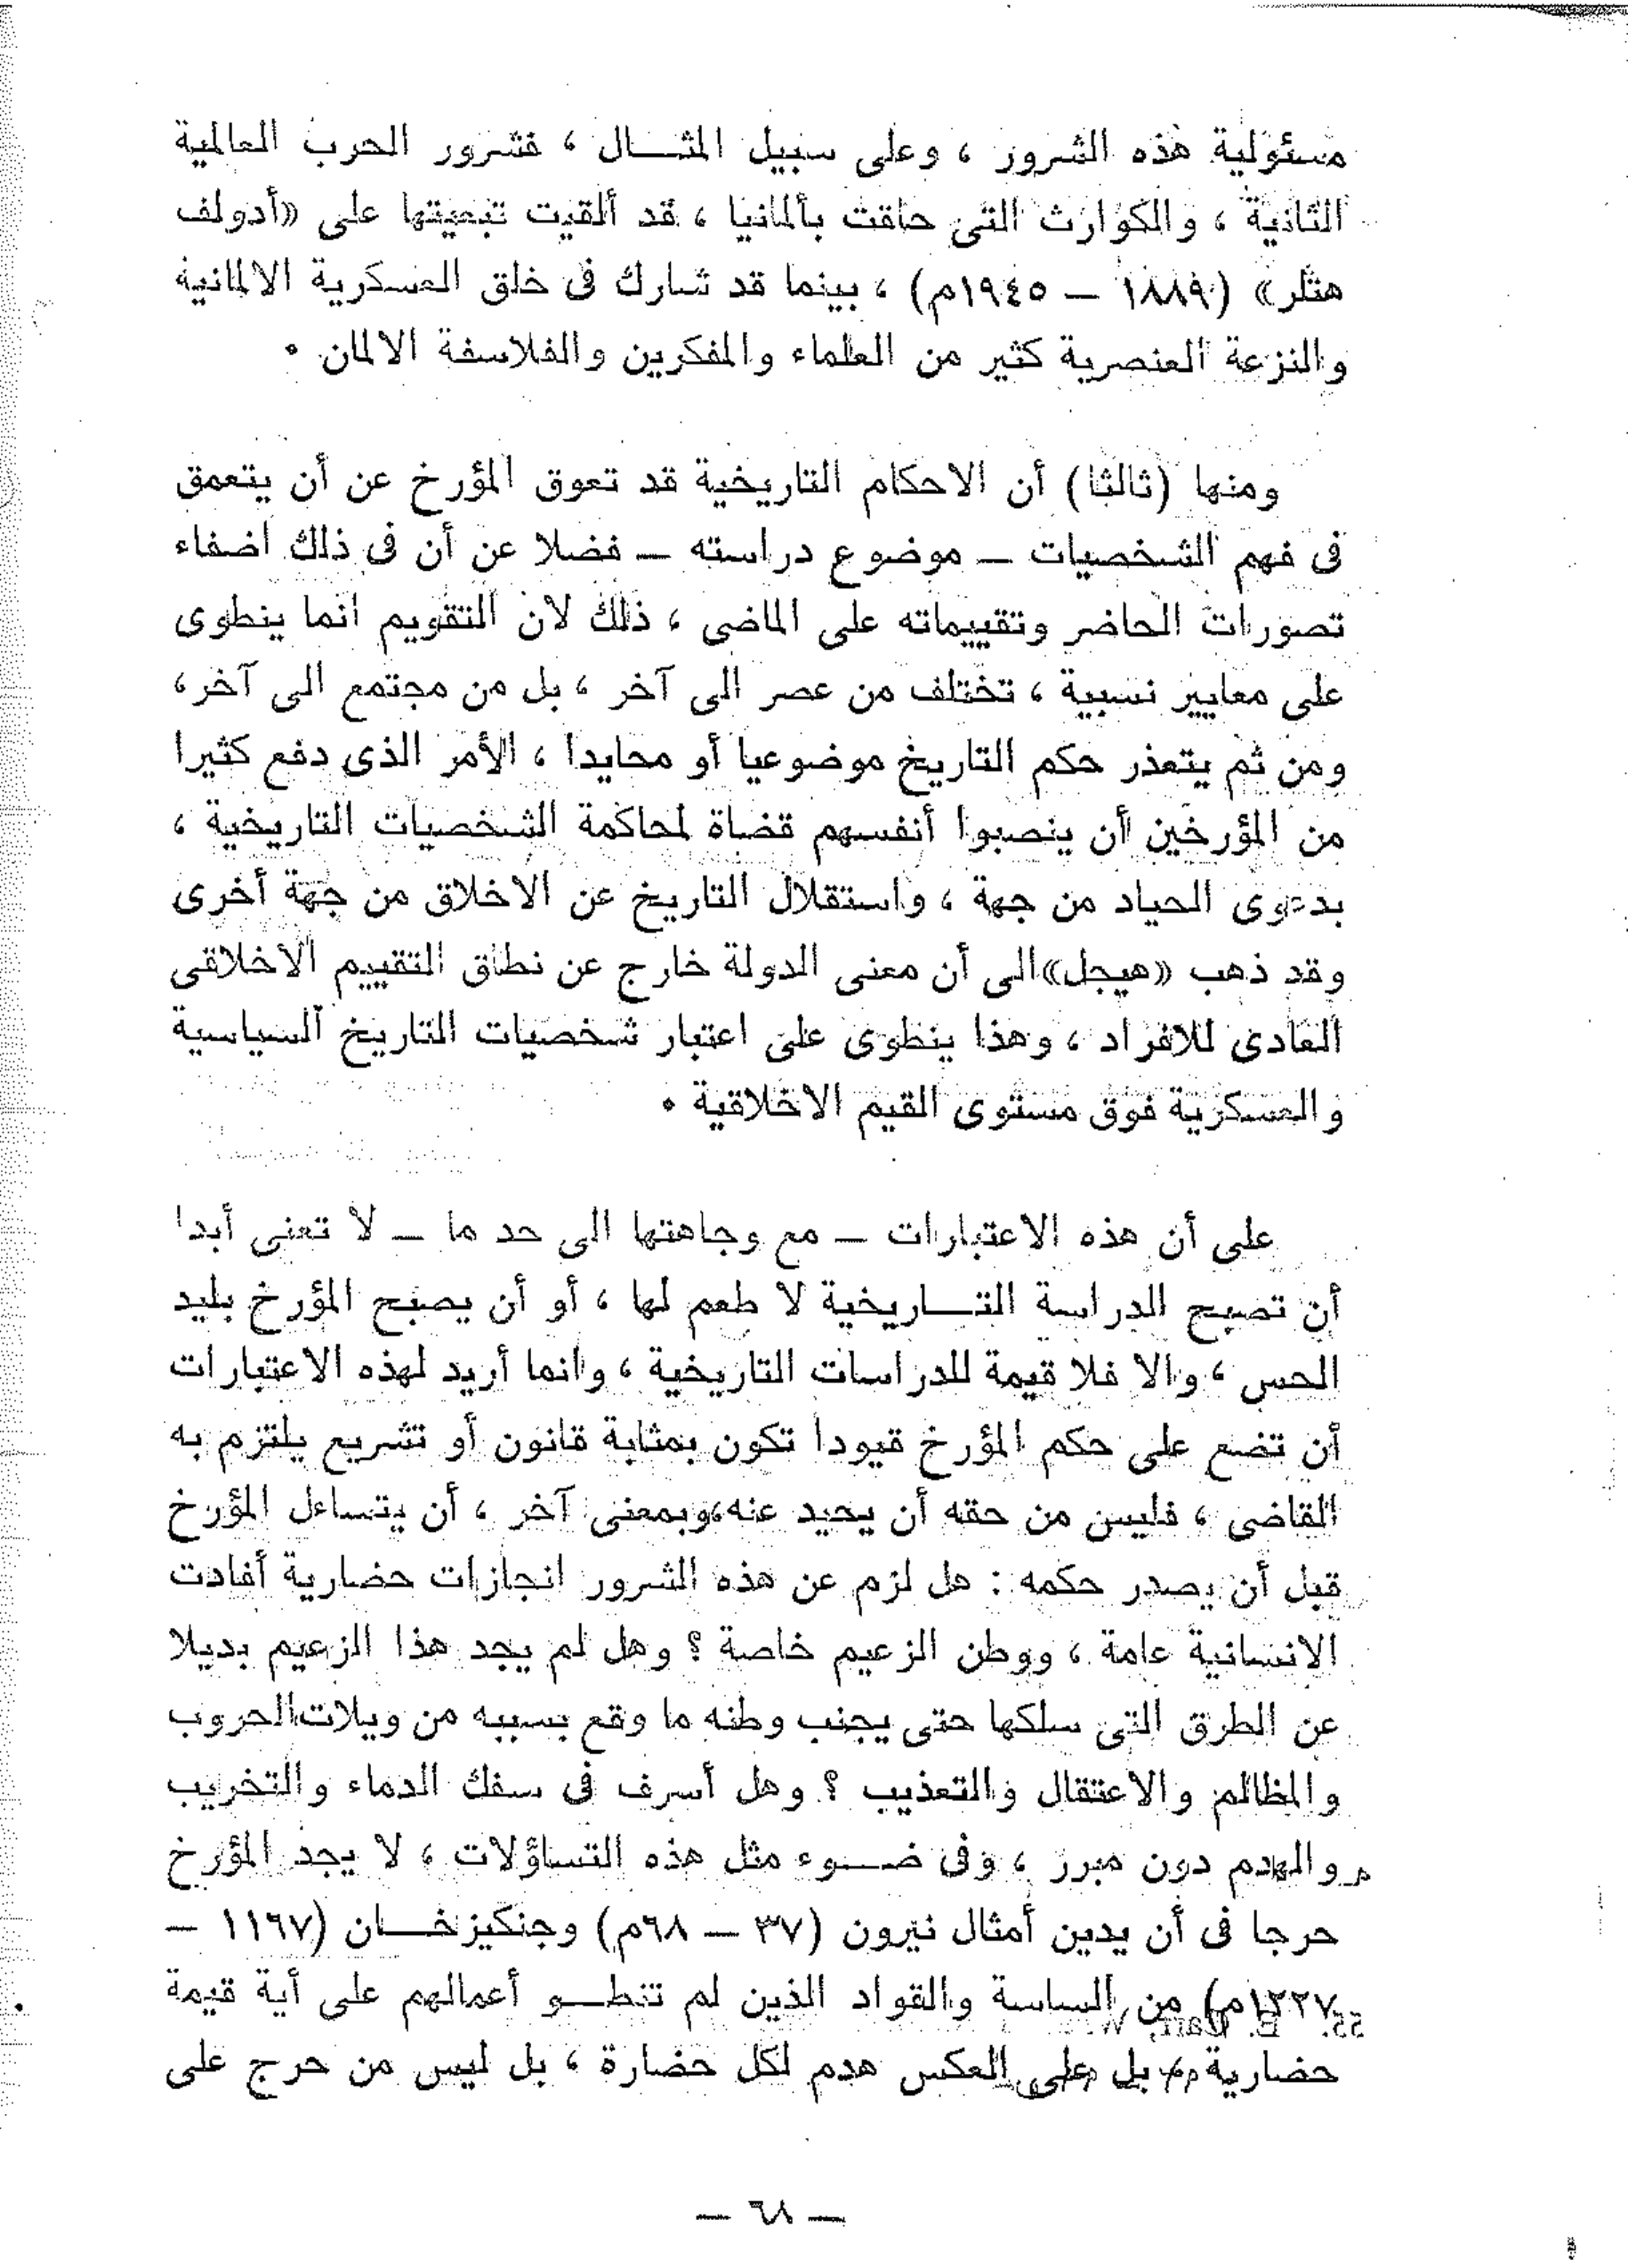 مسئولية هذه الشرور ، وعلى سبيل المثـــال ، فشرور الحرب العالمية
الثانية ، والكوارث التى حاقت بألمانيا ، قد ألقيت تبعيتها على «أدولف
هتلر» (١٨٨٩ – ١٩٤٥م) ، بينما قد شارك فى خلق العسكرية الالمانية
والنزعة العنصرية كثير من العلماء والمفكرين والفلاسفة الالمان ٠
ومنها (ثالثا) أن الاحكام التاريخية قد تعوق المؤرخ عن أن يتعمق
فى فهم الشخصيات – موضوع دراسته – فضلا عن أن فى ذلك اضفاء
تصورات الحاضر وتقييماته على الماضى ، ذلك لان التقويم انما ينطوى
على معايير نسبية ، تختلف من عصر الى آخر ، بل من مجتمع الى آخر،
ومن ثم يتعذر حكم التاريخ موضوعيا أو محايدا ، الأمر الذى دفع كثيرا
من المؤرخين أن ينصبوا أنفسهم قضاة لمحاكمة الشخصيات التاريخية ،
بدعوى الحياد من جهة ، واستقلال التاريخ عن الاخلاق من جهة أخرى
وقد ذهب «هيجل»الى أن معنى الدولة خارج عن نطاق التقييم الاخلاقى
العادى للافراد ، وهذا ينطوى على اعتبار شخصيات التاريخ السياسية
والعسكرية فوق مستوى القيم الاخلاقية ٠
على أن هذه الاعتبارات – مع وجاهتها الى حد ما – لا تعنى أبدا
أن تصبح الدراسة التـــاريخية لا طعم لها ، أو أن يصبح المؤرخ بليد
الحس ، والا فلا قيمة للدراسات التاريخية ، وانما أريد لهذه الاعتبارات
أن تضع على حكم المؤرخ قيودا تكون بمثابة قانون أو تشريع يلتزم به
القاضى ، فليس من حقه أن يحيد عنه،وبمعنى آخر ، أن يتساءل المؤرخ
قبل أن يصدر حكمه : هل لزم عن هذه الشرور انجازات حضارية أفادت
الانسانية عامة ، ووطن الزعيم خاصة ؟ وهل لم يجد هذا الزعيم بديلا
عن الطرق التى سلكها حتى يجنب وطنه ما وقع بسببه من ويلات الحروب
والمظالم والاعتقال والتعذيب ؟ وهل أسرف فى سفك الدماء والتخريب
والهدم دون مبرر ، وفى ضـــوء مثل هذه التساؤلات ، لا يجد المؤرخ
حرجا فى أن يدين أمثال نيرون (٣٧ – ٦٨م) وجنكيزخـــان (١١٦٧ –
١٢٢٧م) من الساسة والقواد الذين لم تنطـــو أعمالهم على أية قيمة
حضارية ، بل على العكس هدم لكل حضارة ، بل ليس من حرج على
– ٦٨ –